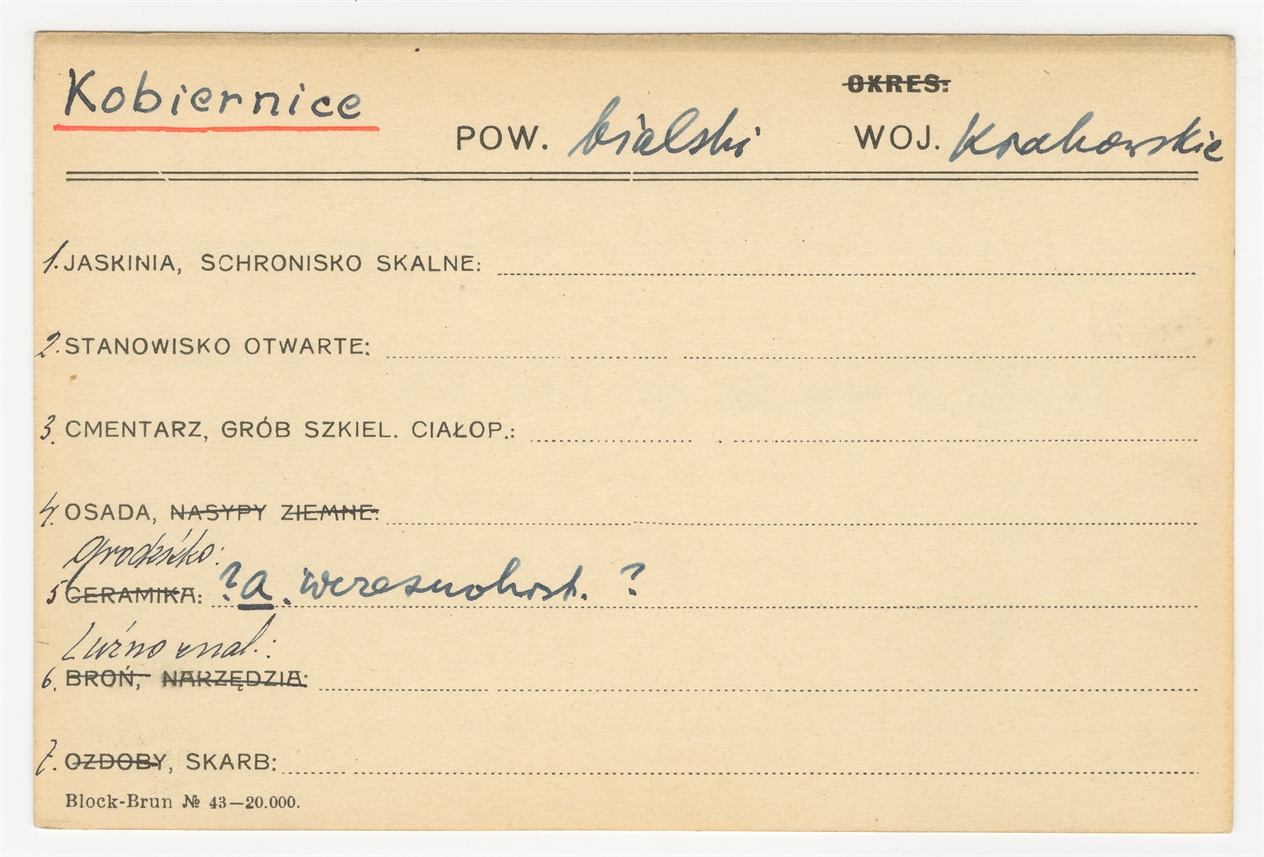 Kobiernice
OKRES:
POW. bialski WOJ. Krakowskie
1. JASKINIA, SCHRONISKO SKALNE:
2. STANOWISKO OTWARTE:
3. CMENTARZ, GRÓB SZKIEL. CIAŁOP.:
4. OSADA, NASYPY ZIEMNE:
Grodzisko:
5 CERAMIKA: ? a. wczesnohist. ?
Luźno znal.:
6. BROŃ, NARZĘDZIA:
7. OZDOBY, SKARB:
Block-Brun № 43—20.000.